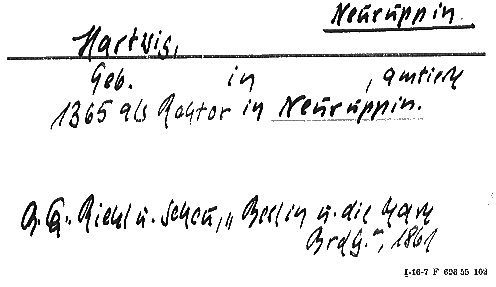 Neuruppin.
Hartwig,
Geb. in , amtiert
1365 als Rektor in Neuruppin.
Riehl u. Scheu, „Berlin u. die Mark
Brdbg.", 1861
I-16-7 F 626 55 102